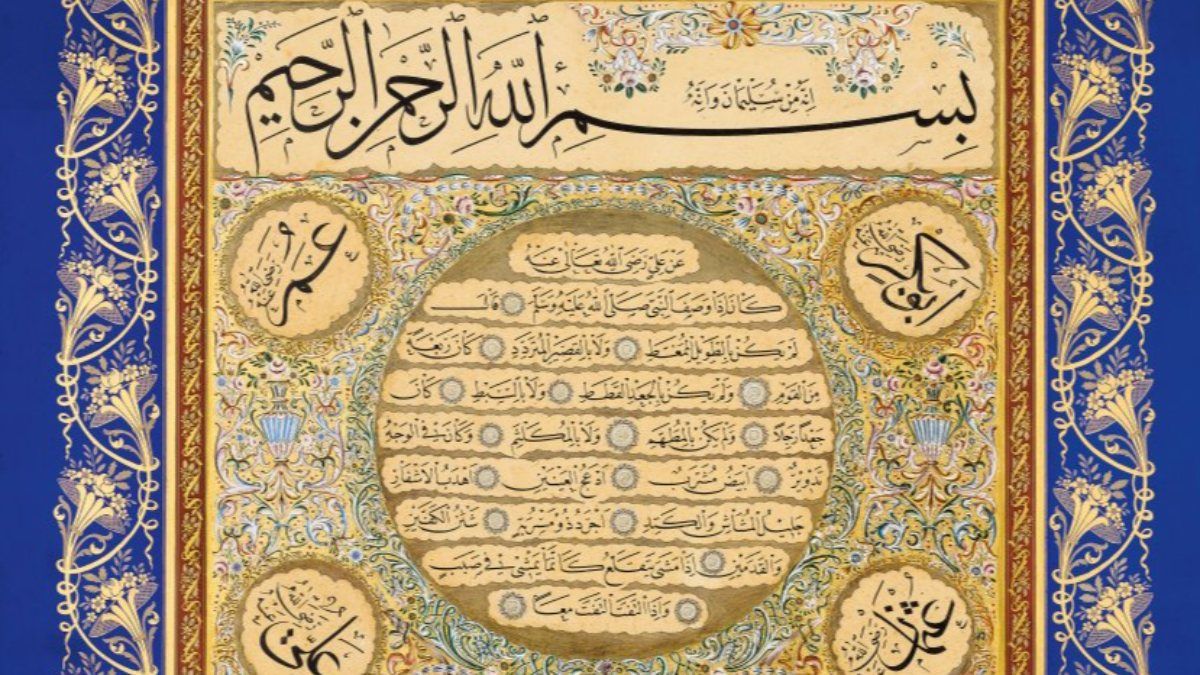 إنه من سليمان وإنه
بسم الله الرحمن الرحيم
أبو بكر
عمر
عن علي رضى الله تعالى عنه
كان إذا وصف النبي صلى الله عليه وسلم قال
لم يكن بالطويل الممغط ولا بالقصير المتردد كان ربعة
من القوم ولم يكن بالجعد القطط ولا بالسبط كان
جعدا رجلا ولم يكن بالمطهم ولا بالمكلثم وكان في الوجه
تدوير أبيض مشرب أدعج العينين أهدب الأشفار
جليل المشاش والكتد أجرد ذو مسربة شثن الكفين
والقدمين إذا مشى يتقلع كأنما يمشي في صبب
وإذا التفت التفت معا
عثمان
علي